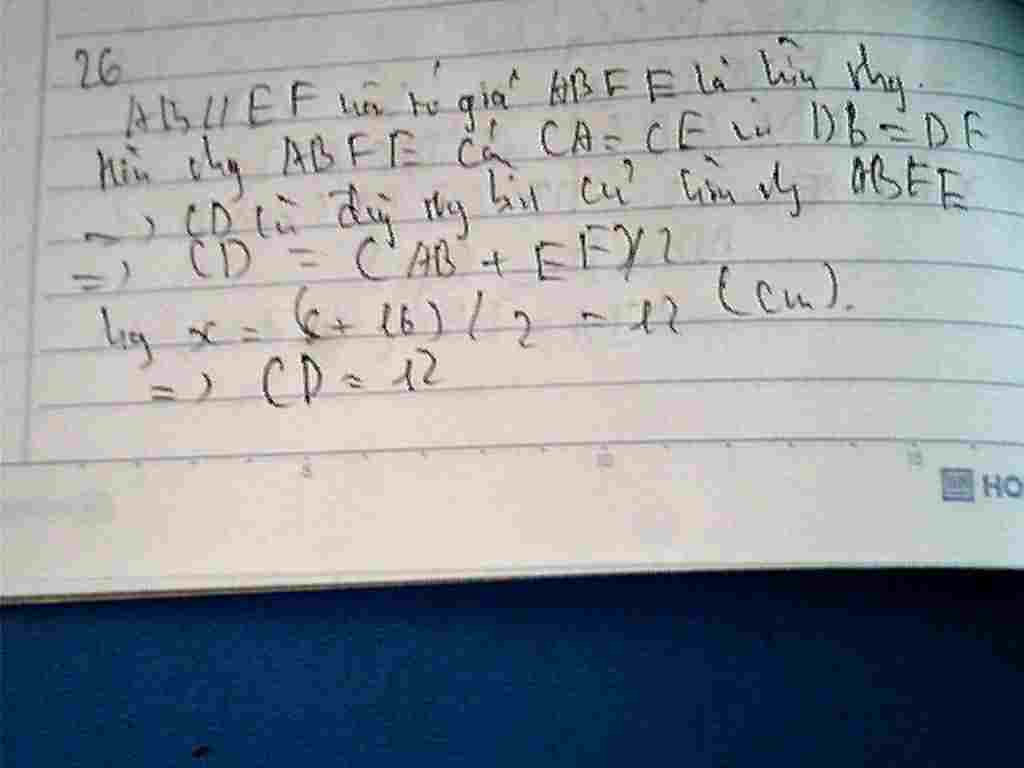 26
AB // EF nên tứ giác ABFE là hình thang.
Hình thang ABFE có CA = CE và DB = DF
=> CD là đường trung bình của hình thang ABFE
=> CD = (AB + EF)/2
hay x = (8 + 16) / 2 = 12 (cm).
=> CD = 12
5 10 15
HO